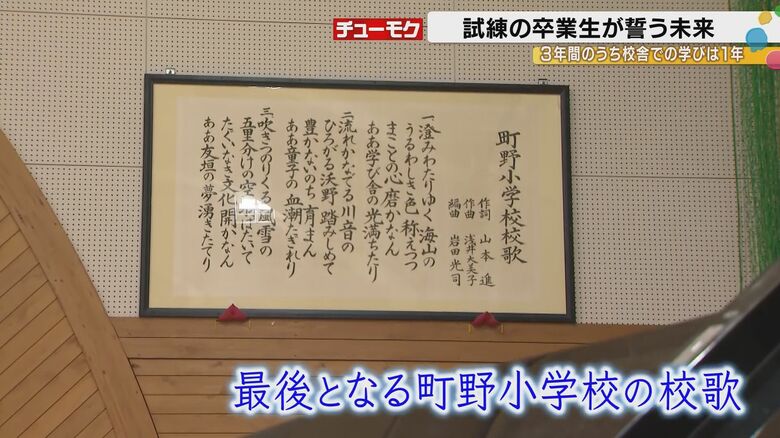 チューモク
試練の卒業生が誓う未来
3年間のうち校舎での学びは1年
町野小学校校歌
作詞 山本 進
作曲 浅井大美子
編曲 岩田光司
一 澄みわたりゆく 海山の
うるわしき色 称えつつ
まことの心 磨かなん
ああ学び舎の 光満ちたり
二 流れかなでる 川音の
ひろがる沃野 踏みしめて
豊かないのち 育まん
ああ童子の 血潮たぎれり
三 吹きつのりくる 風雪の
五里分けの空 はたいて
たぐいなき文化 開かなん
ああ友垣の 夢湧きたてり
最後となる町野小学校の校歌